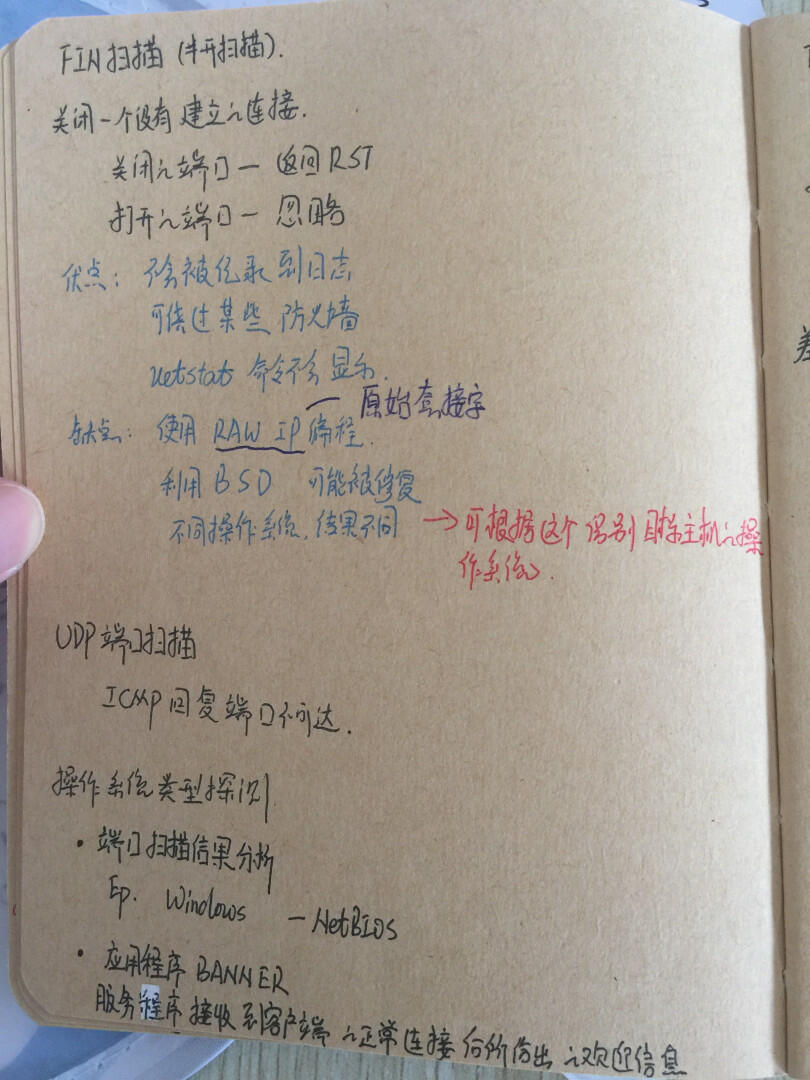 FIN扫描 (半开扫描).
关闭一个没有建立的连接.
关闭的端口 — 返回RST
打开的端口 — 忽略
优点: 不会被记录到日志
可绕过某些防火墙
netstats 命令不会显示.
原始套接字
缺点: 使用 RAW IP 编程.
利用BSD 可能被修复
不同操作系统, 结果不同 → 可根据这个识别目标主机的操
作系统.
UDP端口扫描
ICMP回复端口不可达.
操作系统类型探测
· 端口扫描信息分析
Ep. Windows — NetBIOS
· 应用程序BANNER
服务程序接收到客户端的正常连接后所给出的欢迎信息